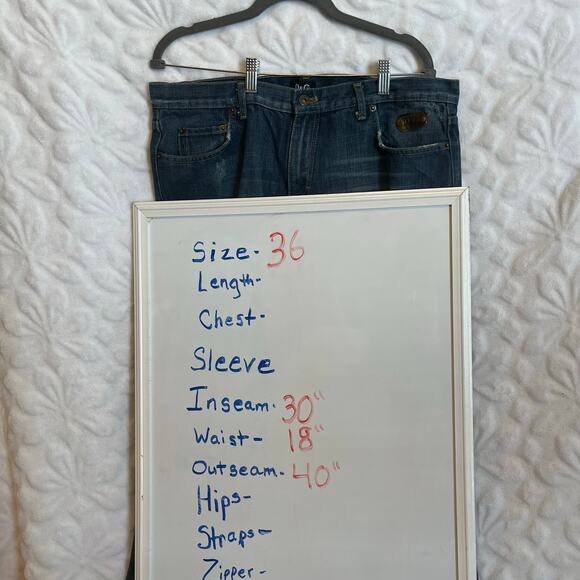 D&G
Size- 36
Length-
Chest-
Sleeve
Inseam. 30"
Waist- 18"
Outseam. 40"
Hips-
Straps-
Zipper-